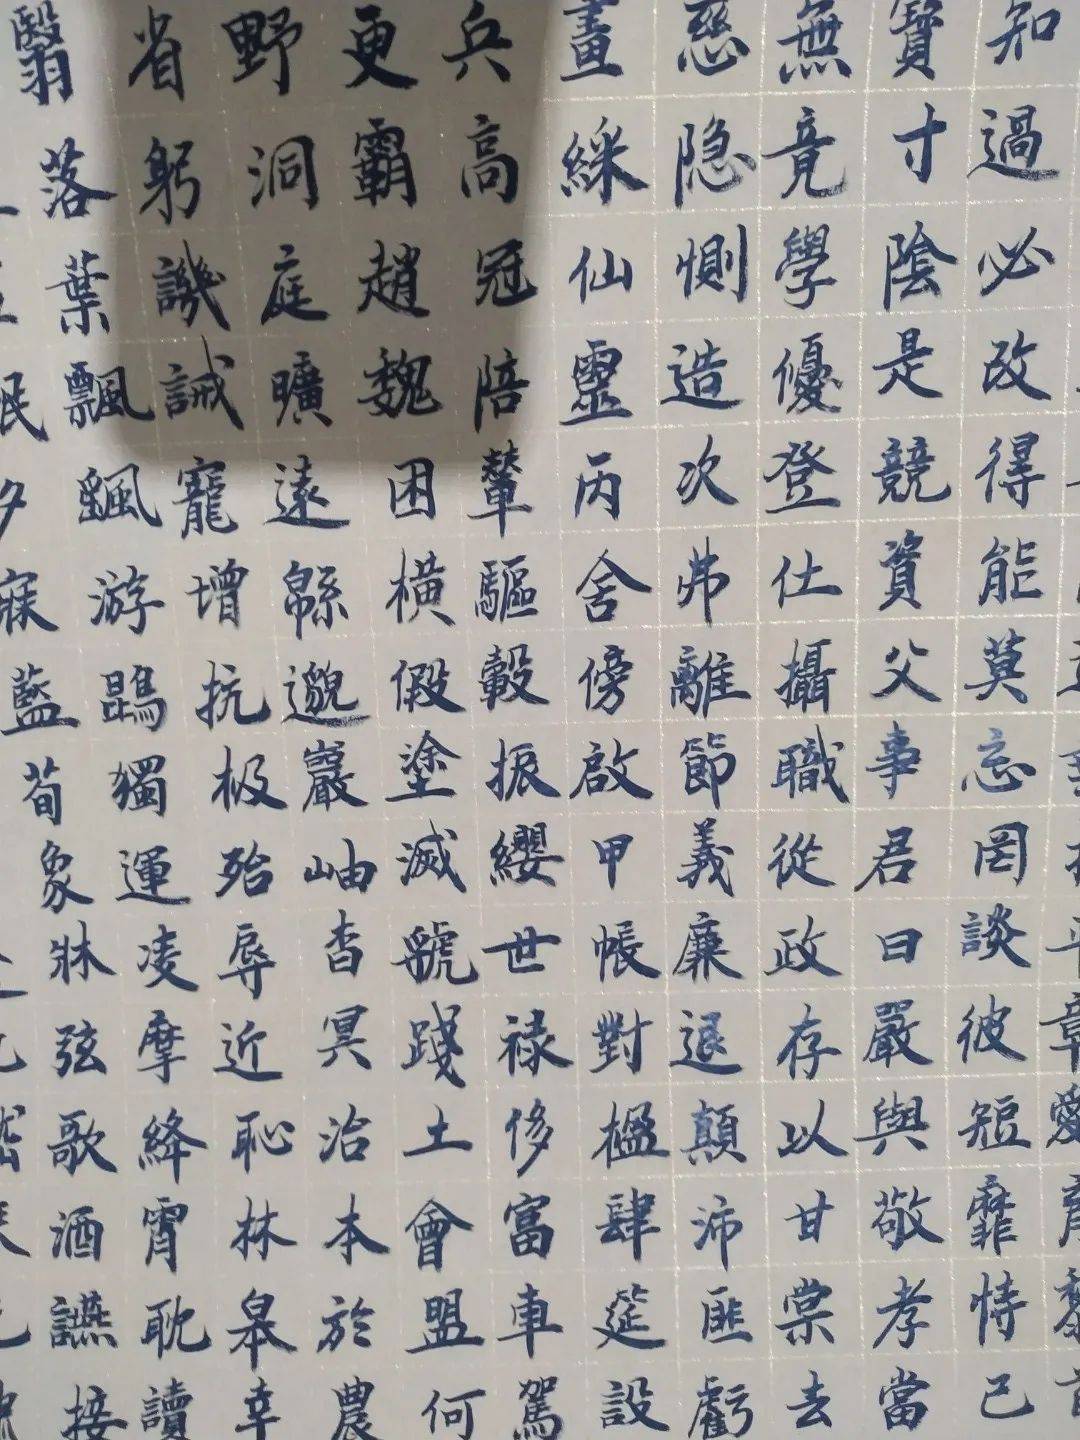 章愛育黎
知過必改得能莫忘罔談彼短靡恃己
寶寸陰是競資父事君曰嚴與敬孝當
無竟學優登仕攝職從政存以甘棠去
慈隐惻造次弗離節義廉退顛沛匪虧
畫綵仙靈丙舍傍啟甲帳對楹肆筵設
兵高冠陪輦驅轂振纓世禄侈富車駕
更霸趙魏困橫假塗滅虢踐土會盟何
野洞庭曠遠緜邈巖岫杳冥治本於農
省躬譏誡寵增抗极殆辱近恥林皋幸
翳落葉飄颻游鵾獨運凌摩絳霄耽讀
眠夕寐藍荀象牀弦歌酒讌接